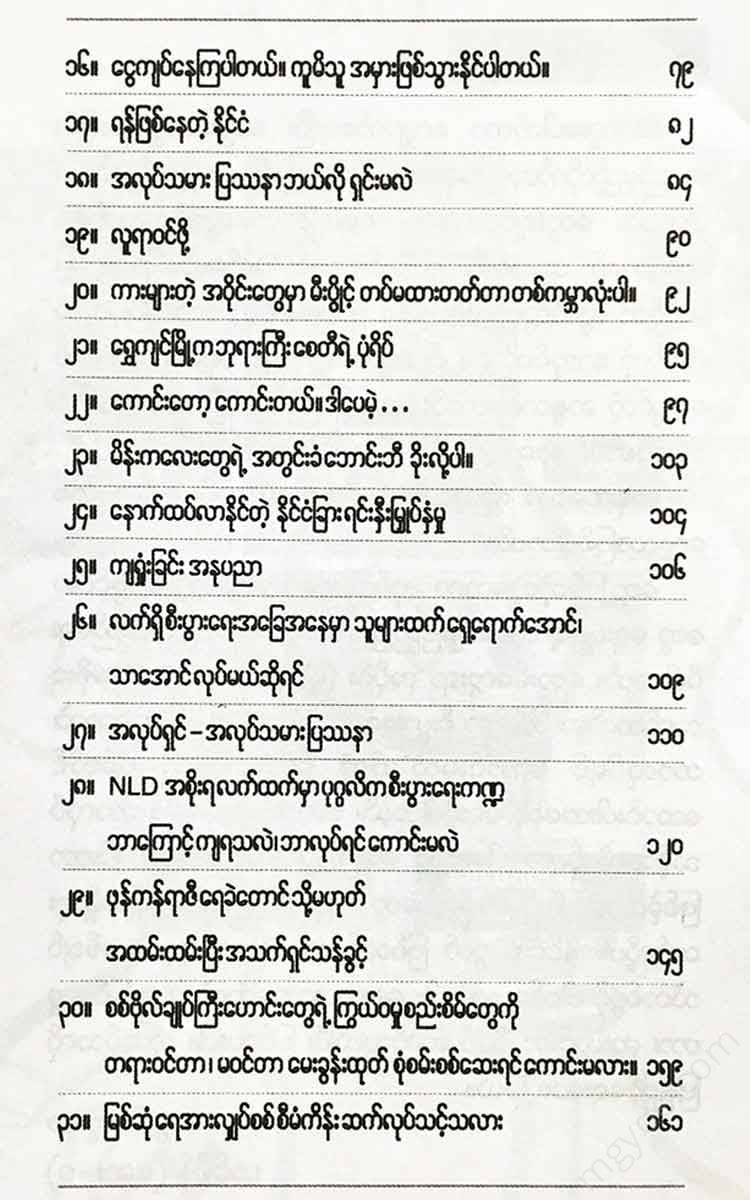 ၁၆။ ငွေကျပ်နေကြပါတယ်။ ကူမိသူ အမှားဖြစ်သွားနိုင်ပါတယ်။ ၇၉
၁၇။ ရန်ဖြစ်နေတဲ့ နိုင်ငံ ၈၂
၁၈။ အလုပ်သမား ပြဿနာ ဘယ်လို ရှင်းမလဲ ၈၄
၁၉။ လူရာဝင်ဖို့ ၉၀
၂၀။ ကားများတဲ့ အဝိုင်းတွေမှာ မီးပွိုင့် တပ်မထားတတ်တာ တစ်ကမ္ဘာလုံးပါ။ ၉၂
၂၁။ ရွှေကျင်မြို့က ဘုရားကြီး စေတီရဲ့ ပုံရိပ် ၉၅
၂၂။ ကောင်းတော့ ကောင်းတယ်။ ဒါပေမဲ့ . . . ၉၇
၂၃။ မိန်းကလေးတွေရဲ့ အတွင်းခံဘောင်းဘီ ခိုးလို့ပါ။ ၁၀၃
၂၄။ နောက်ထပ်လာနိုင်တဲ့ နိုင်ငံခြား ရင်းနှီးမြှုပ်နှံမှု ၁၀၄
၂၅။ ကျရှုံးခြင်း အနုပညာ ၁၀၆
၂၆။ လက်ရှိစီးပွားရေးအခြေအနေမှာ သူများထက် ရှေ့ရောက်အောင်၊
သာအောင် လုပ်မယ်ဆိုရင် ၁၀၉
၂၇။ အလုပ်ရှင် – အလုပ်သမား ပြဿနာ ၁၁၀
၂၈။ NLD အစိုးရလက်ထက်မှာ ပုဂ္ဂလိက စီးပွားရေးကဏ္ဍ
ဘာကြောင့် ကျရသလဲ၊ ဘာလုပ်ရင် ကောင်းမလဲ ၁၂၀
၂၉။ ဖုန်ကန်ရာဇီ ရေခဲတောင် သို့မဟုတ်
အထမ်းထမ်းပြီး အသက်ရှင်သန်ခွင့် ၁၄၅
၃၀။ စစ်ဗိုလ်ချုပ်ကြီးဟောင်းတွေရဲ့ ကြွယ်ဝမှုစည်းစိမ်တွေကို
တရားဝင်တာ၊ မဝင်တာ မေးခွန်းထုတ် စုံစမ်းစစ်ဆေးရင် ကောင်းမလား။ ၁၅၉
၃၁။ မြစ်ဆုံ ရေအားလျှပ်စစ် စီမံကိန်း ဆက်လုပ်သင့်သလား ၁၆၁